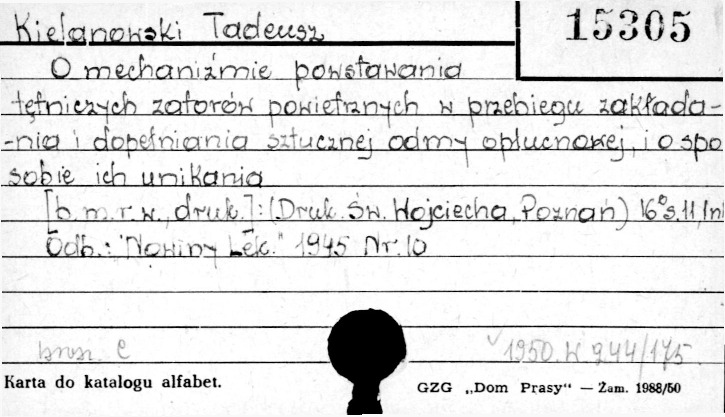 Kielanowski Tadeusz
15305
O mechaniźmie powstawania
tętniczych zatorów powietrznych w przebiegu zakłada-
-nia i dopełniania sztucznej odmy opłucnowej, i o spo
sobie ich unikania
[b.m.r.w., druk.]: (Druk. Św. Wojciecha, Poznań) 16° s. 11, lnl
Odb.: "Nowiny Lek." 1945 Nr. 10
brosz. C
1950. W 244/175
Karta do katalogu alfabet.
GZG „Dom Prasy“ — Zam. 1988/50